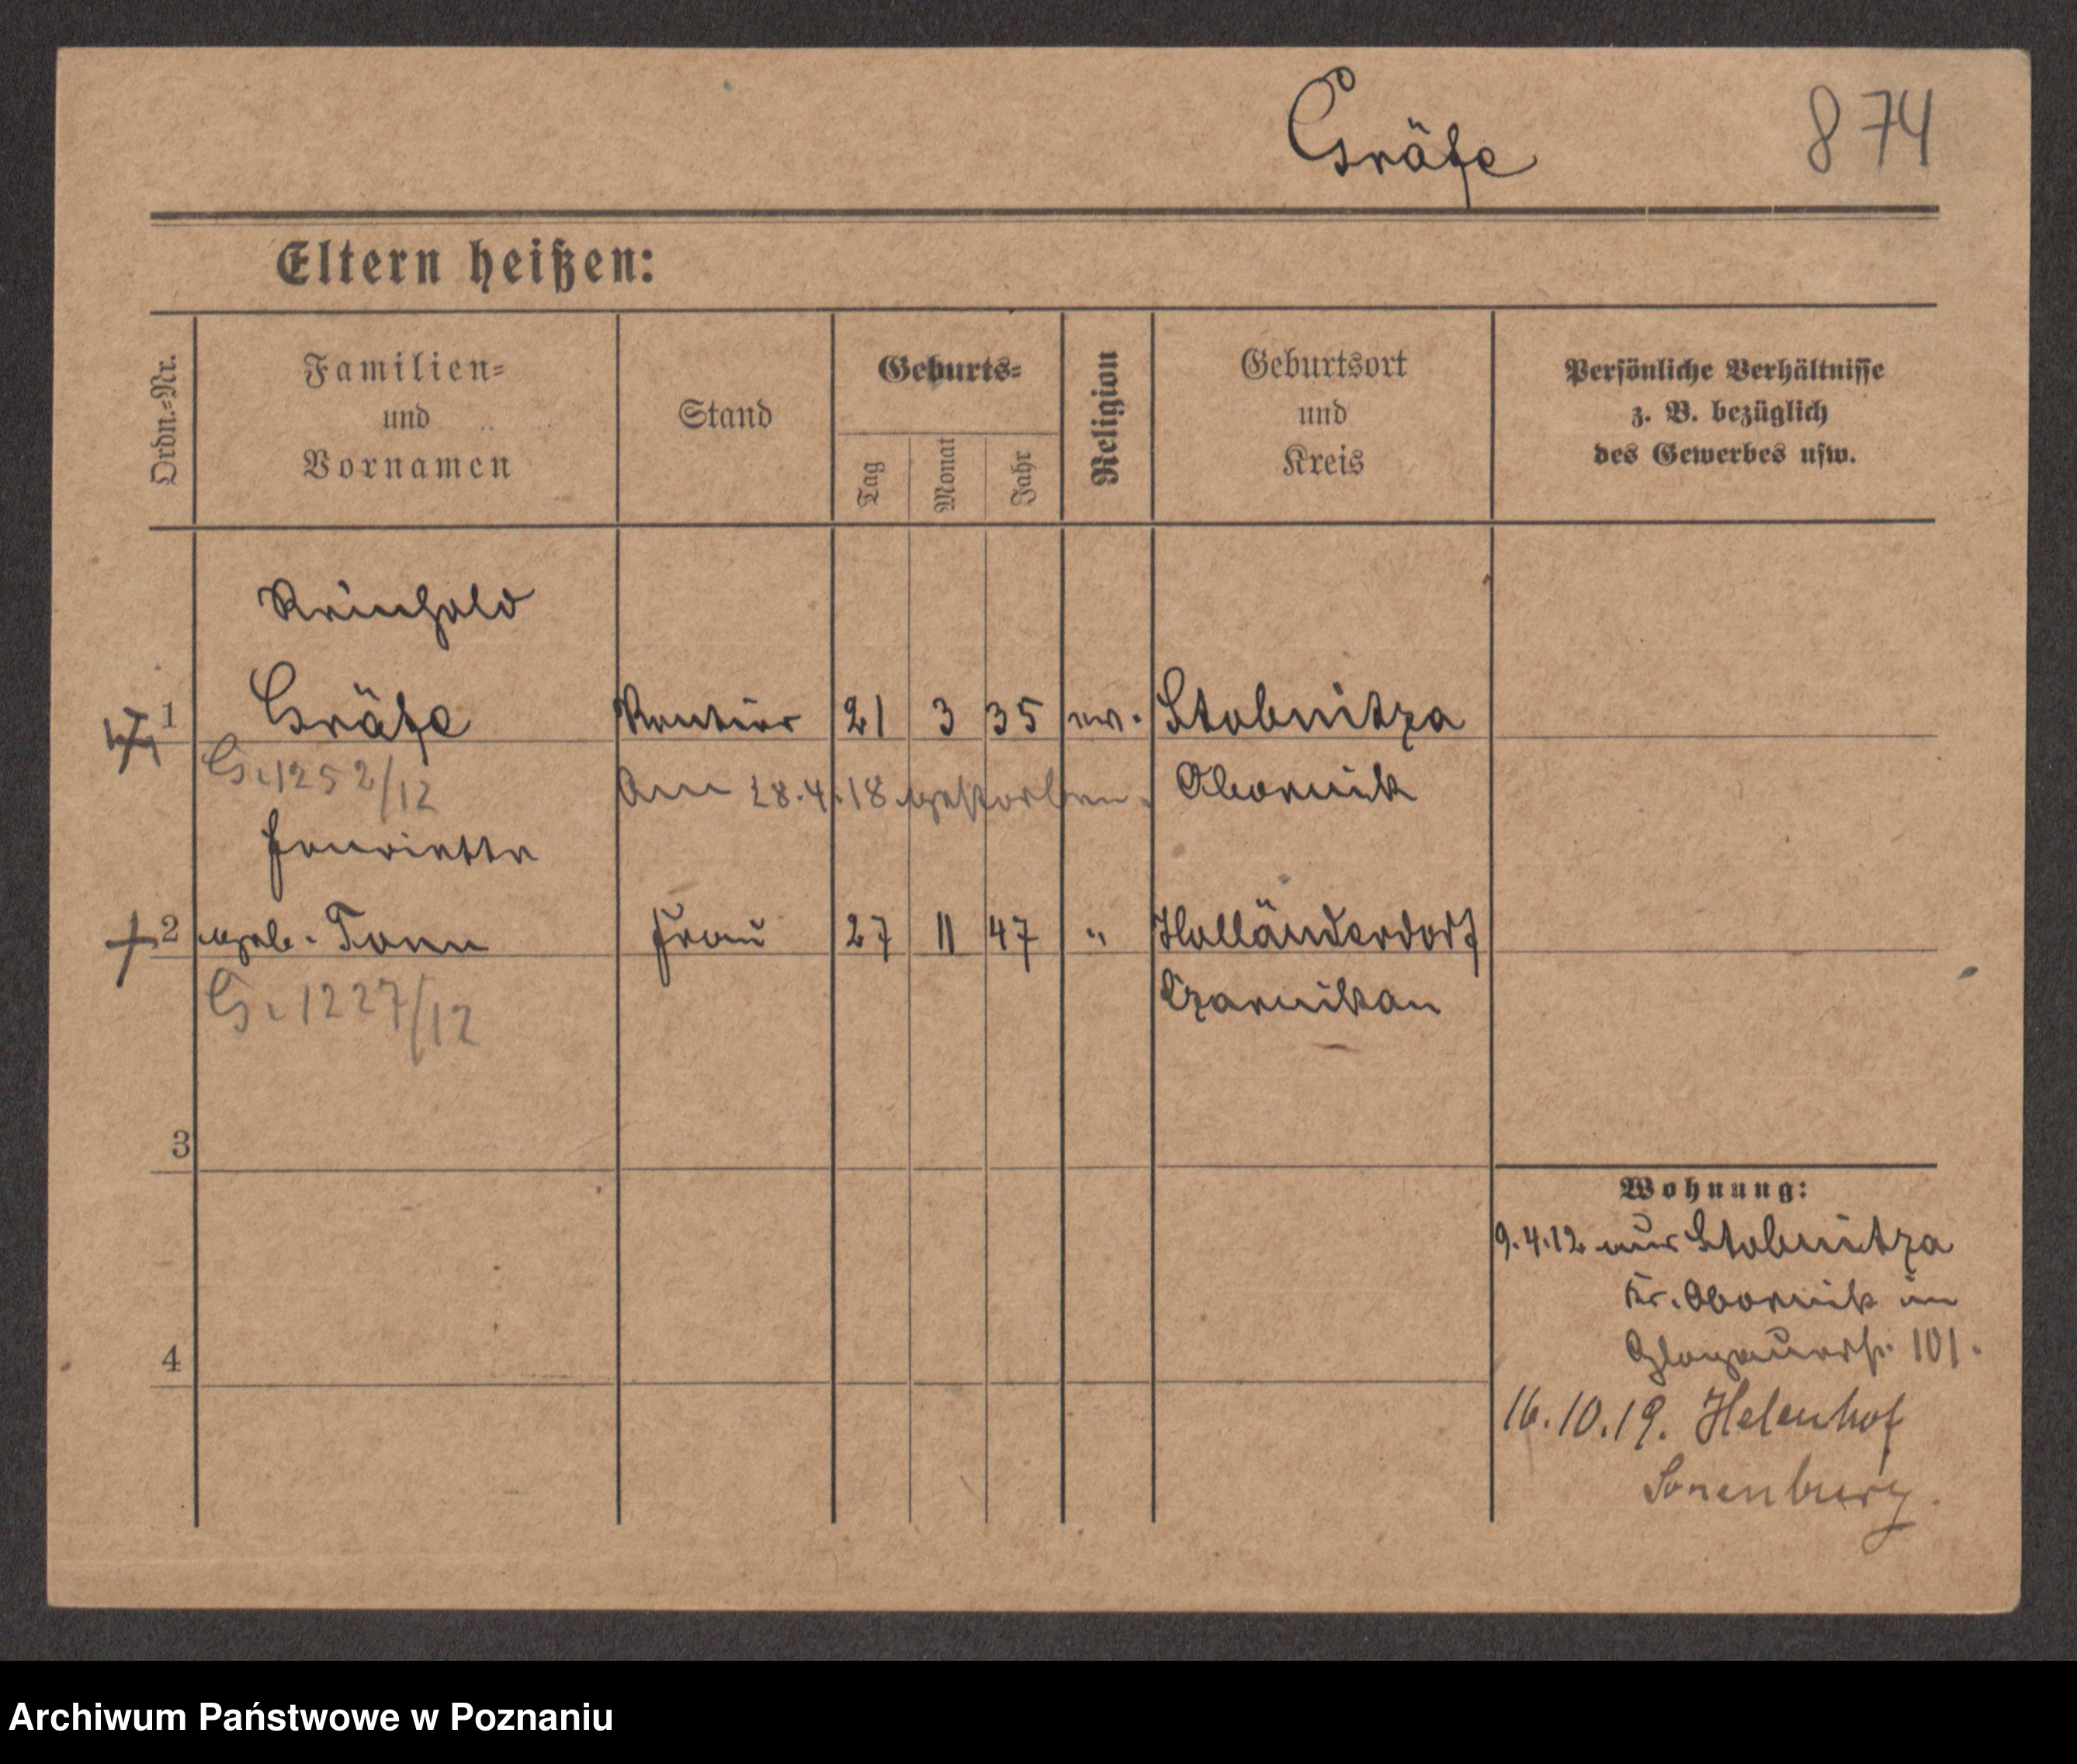 Gräfe 874
Eltern heißen:
Ordn.-Nr.
Familien-
und
Vornamen
Stand
Geburts-
Tag
Monat
Jahr
Religion
Geburtsort
und
Kreis
Persönliche Verhältnisse
z. B. bezüglich
des Gewerbes usw.
Reinhold
1 Gräfe Rentier 21 3 35 ev. Stobnitza
G. 1252/12 Am 28.4.18 gestorben. Obornik
Henriette
2 geb. Tonn Frau 27 11 47 " Holländerdorf
G. 1227/12 Czarnikau
3
4
Wohnung:
9.4.12 aus Stobnitza
Kr. Obornik in
Glogauerstr. 101.
16.10.19. Helenhof
Sonenburg.
Archiwum Państwowe w Poznaniu